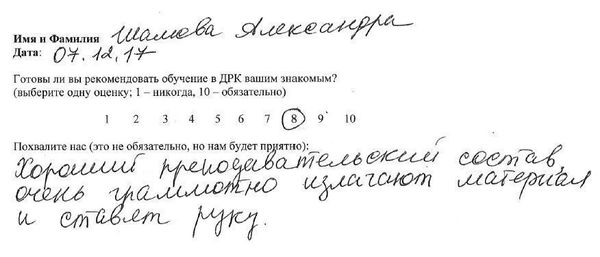 Имя и Фамилия Шамова Александра
Дата: 07.12.17
Готовы ли вы рекомендовать обучение в ДРК вашим знакомым?
(выберите одну оценку; 1 – никогда, 10 – обязательно)
1 2 3 4 5 6 7 8 9 10
Похвалите нас (это не обязательно, но нам будет приятно):
Хороший преподавательский состав,
очень грамотно излагают материал
и ставят руку.